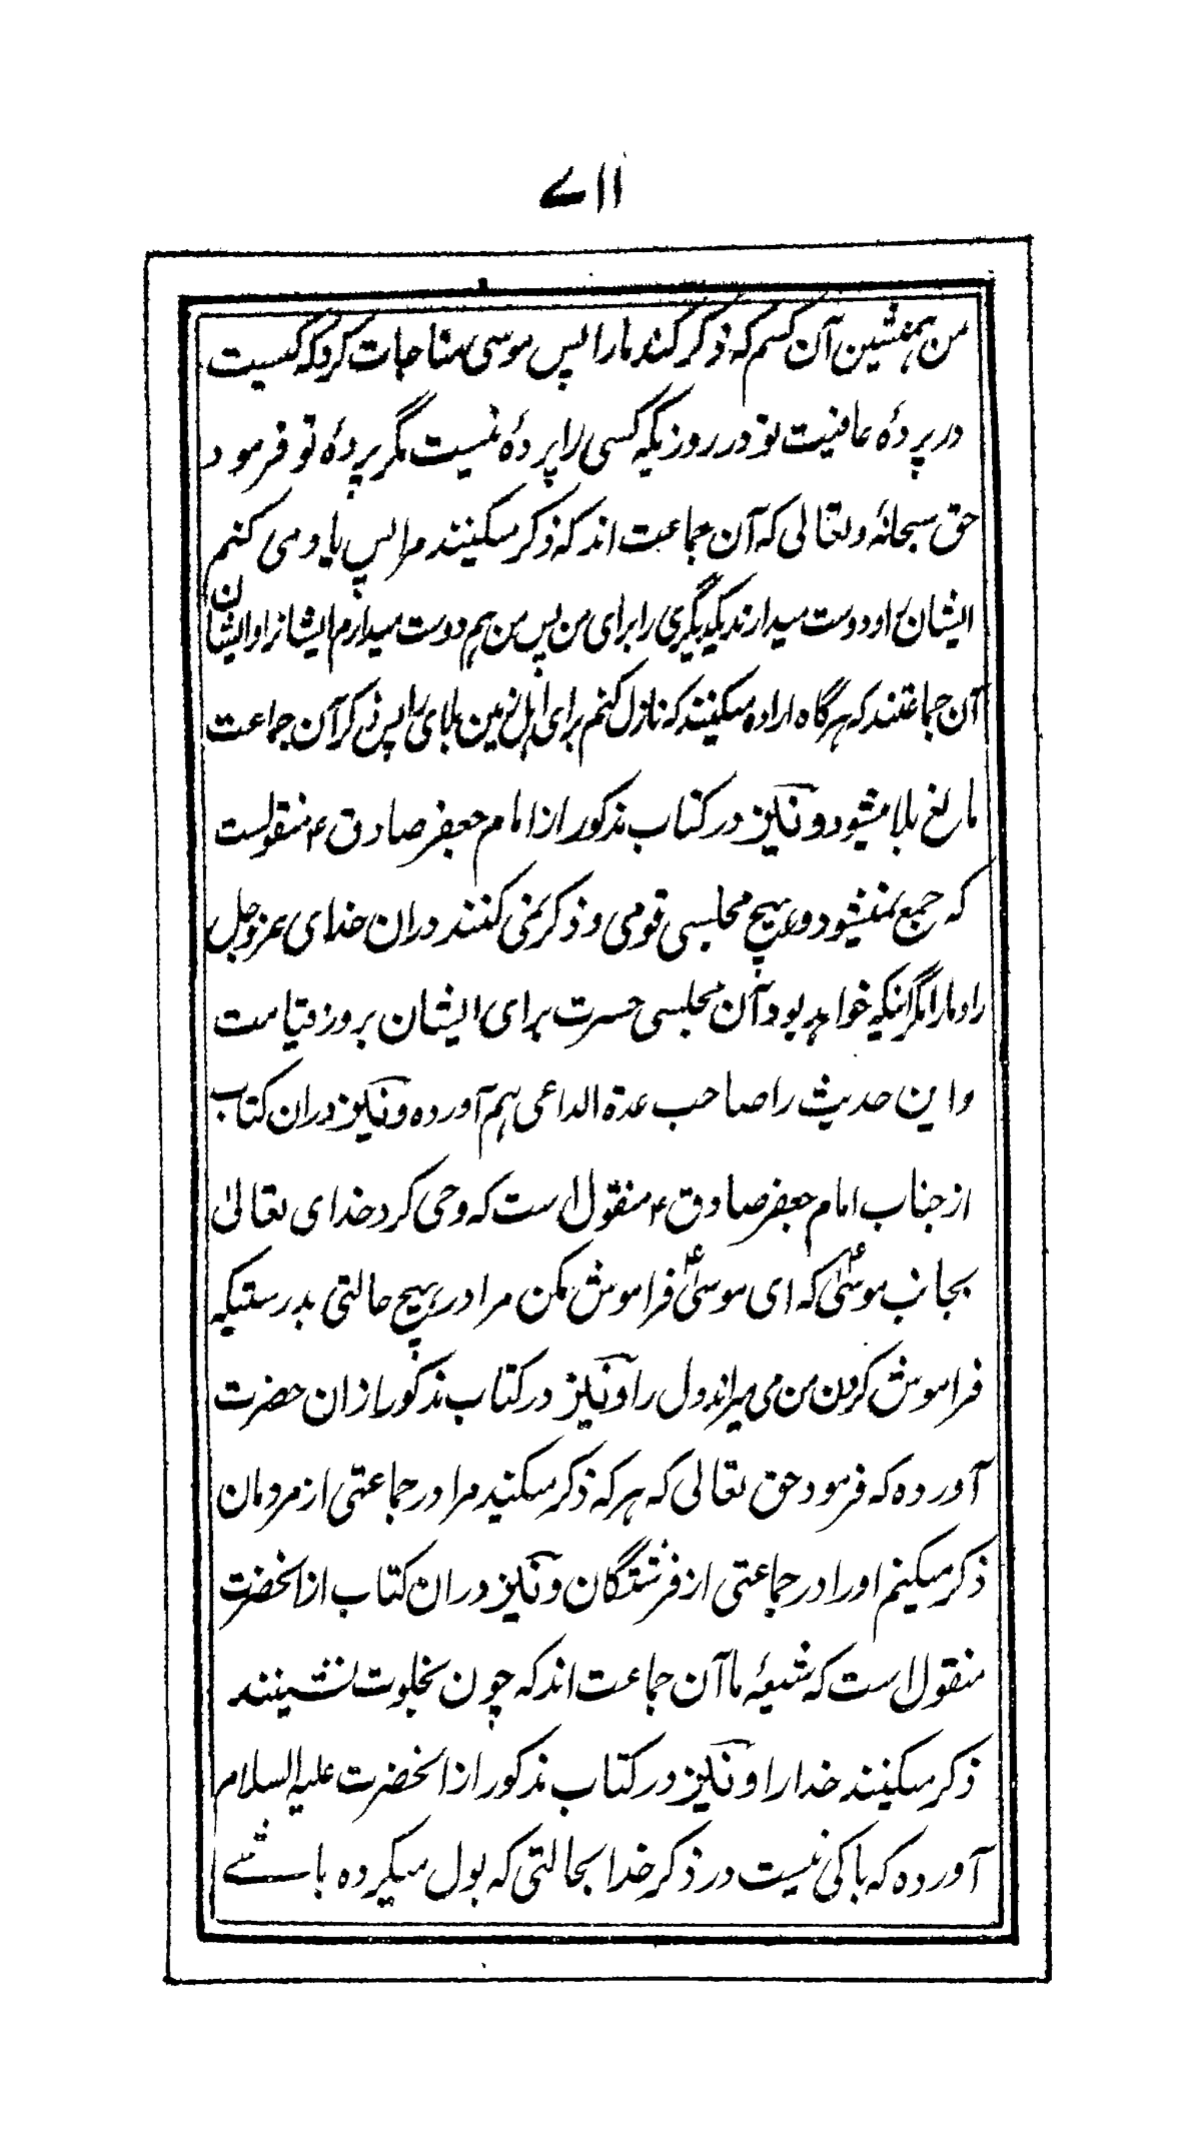 ۷۱۱
من همنشین آن کسم که ذکر کند مارا پس موسی مناجات کرد که کیست
در پردهٔ عافیت تو در روزیکه کسی را پردهٔ نیست مگر پردهٔ تو فرمود
حق سبحانهٔ و تعالی که آن جماعت اند که ذکر میکنند مرا پس یاد می کنم
ایشان را و دوست میدارند یکدیگری را برای من پس من هم دوست میدارم ایشانرا و ایشان
آن جماعتند که هرگاه اراده میکنند که نازل کنم برای اهل زمین بلای را پس ذکر آن جماعت
مانع بلا میشود و نیز در کتاب مذکور از امام جعفر صادق ع منقولست
که جمع نمیشود در هیچ مجلسی قومی و ذکر نمی کنند دران خدای عز و جل
را و مارا مگر اینکه خواهد بود آن مجلسی حسرت برای ایشان بروز قیامت
و این حدیث را صاحب عدة الداعی هم آورده و نیز دران کتاب
از جناب امام جعفر صادق ع منقول است که وحی کرد خدای تعالیٰ
بجانب موسیٰؑ که ای موسیٰؑ فراموش مکن مرا در هیچ حالتی بدرستیکه
فراموش کردن من می میراند دل را و نیز در کتاب مذکور ازان حضرت
آورده که فرمود حق تعالی که هر که ذکر میکنید مرا در جماعتی از مردمان
ذکر میکنم او را در جماعتی از فرشتگان و نیز دران کتاب از انحضرت
منقول است که شیعهٔ ما آن جماعت اند که چون بخلوت نشینند
ذکر میکنند خدا را و نیز در کتاب مذکور از انحضرت علیه السلام
آورده که باکی نیست در ذکر خدا بحالتی که بول میکرده باشے